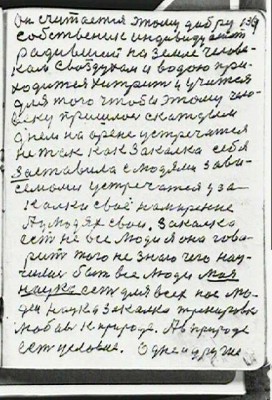 Он считается этому добру 139
собственик индивидуалист
родивший на земле челове-
ком с воздухом и водою при-
ходится хитрит и учится
для того чтобы этому чело-
веку пришлось с каждым
днем на арене встречатся
не так как Закалка себя
заставила с людями зави-
симоми устречатся у за
калки своё намирение
А у людях свои. Закалка
ест не все люди я она гово-
рит того не знаю чего нау-
чилис быт все люди моя
наука ест для всех нас лю-
дей наука Закалка тренировка
любов к природе. А в природе
ест условие. Одне и друг же